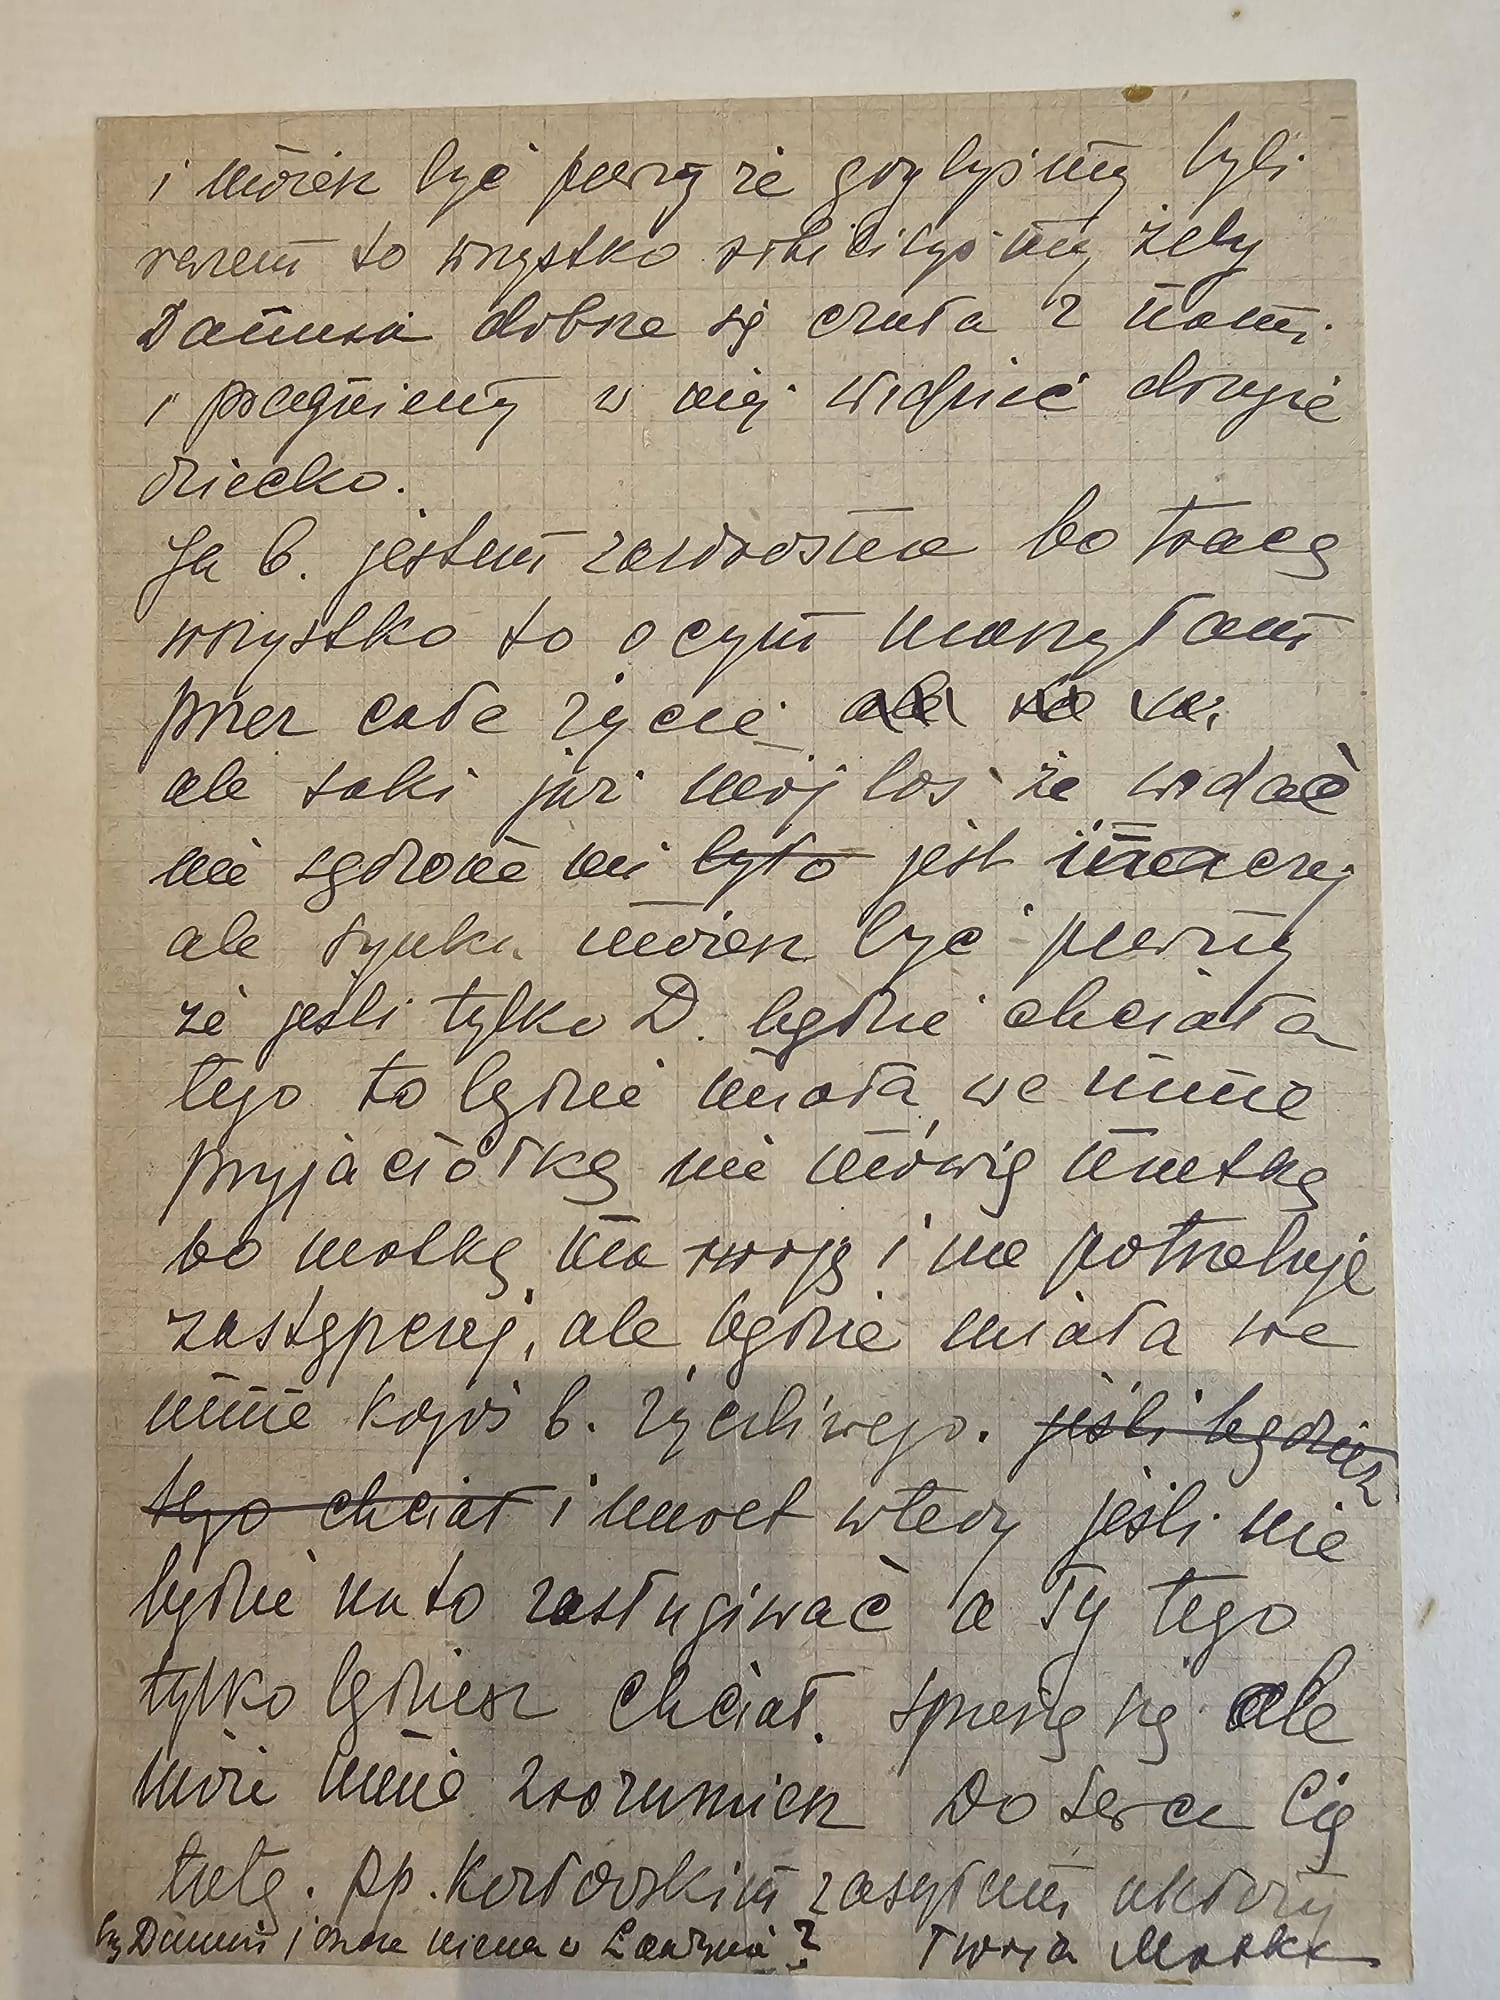 i możesz być pewny że gdybyśmy byli
razem to wszystko robilibyśmy żeby
Danusia dobrze się czuła z nami
i pragniemy w niej widzieć drugie
dziecko.
Ja b. jestem zazdrosna bo tracę
wszystko to o czym marzyłam
przez całe życie ale
ale taki już mój los że widać
nie sądzone mi było jest inaczej
ale synku możesz być pewny
że jeśli tylko D. będzie chciała
tego to będzie miała we mnie
przyjaciółkę nie mówię matkę
bo matkę ma swoją i nie potrzebuje
zastępczej, ale będzie miała we
mnie kogoś b. życzliwego. jeśli będziesz
tego chciał i nawet wtedy jeśli nie
będzie na to zasługiwać a Ty tego
tylko będziesz chciał. Spieszę się ale
może mnie zrozumiesz Do serca Cię
tulę. pp. zasyłam ukłony
czy Danusi i ona niema w Londynie? Twoja Matka